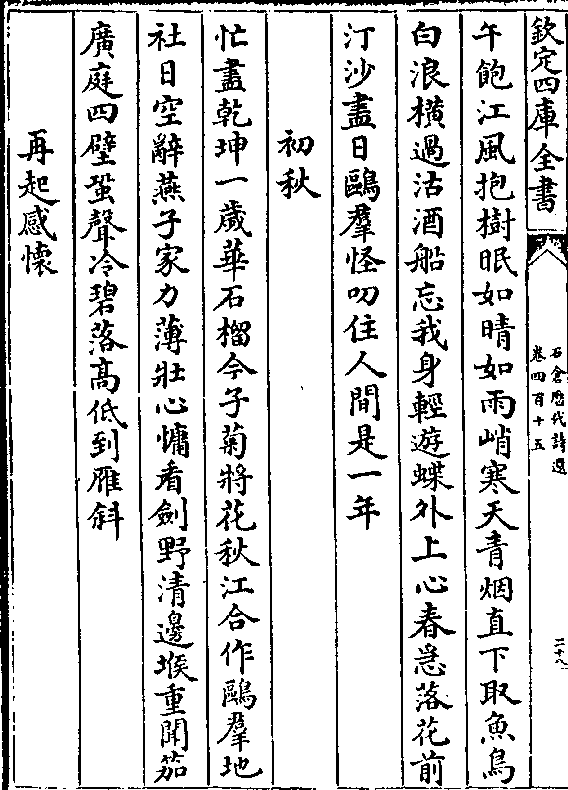 欽定四庫全書
石倉歷代詩選
卷四百十五
二十八
午飽江風抱樹眠如晴如雨峭寒天青烟直下取魚鳥
白浪橫過沽酒船忘我身輕遊蝶外上心春急落花前
汀沙盡日鷗羣怪叨住人間是一年
初秋
忙盡乾坤一歲華石榴今子菊將花秋江合作鷗羣地
社日空辭燕子家力薄壯心慵看劍野清邊堠重聞笳
廣庭四壁蛩聲冷碧落髙低到雁斜
再起感懐